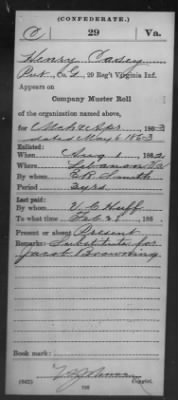 (CONFEDERATE.)
C 29 Va.
Henry Casey
Pvt, Co. 29 Reg't Virginia Inf.
Appears on
Company Muster Roll
of the organization named above,
for Mch & Apr, 1863
dated May 6, 1863
Enlisted:
When Aug 1, 1862
Where Lebanon Va
By whom E R Smith
Period 3 yrs
Last paid:
By whom V. C. Huff
To what time Feb 28, 186
Present or absent Present
Remarks: Substitute for
Jacob Browning
Book mark:
(642) Copyist.